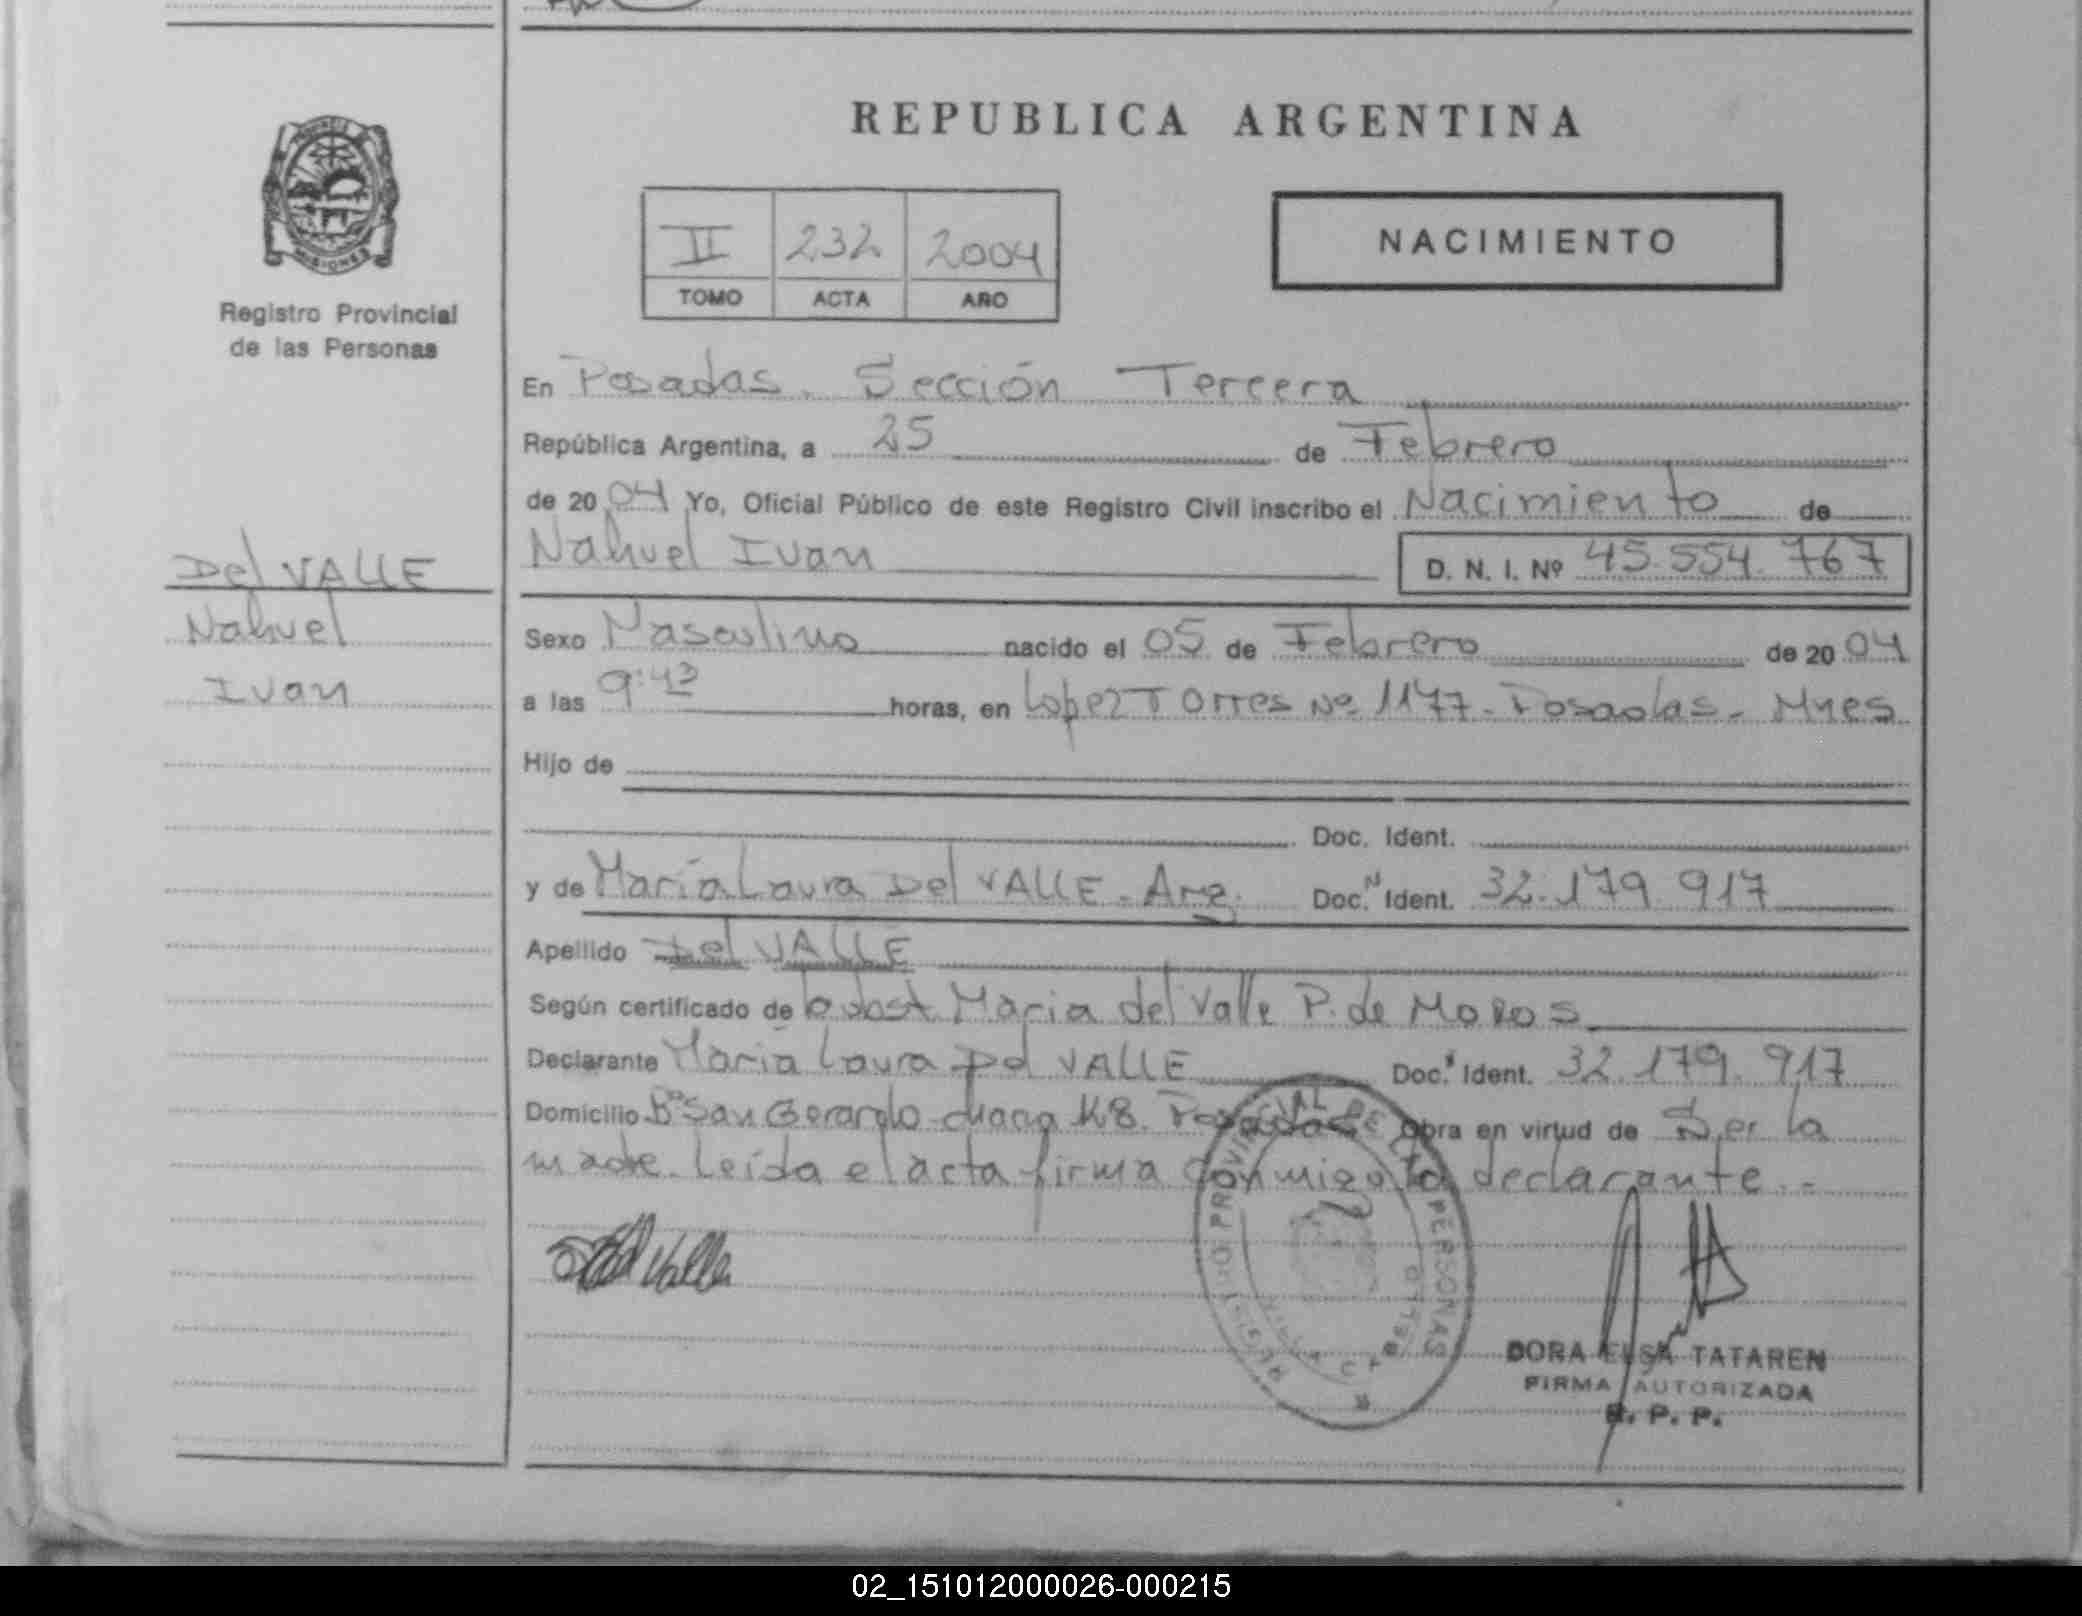 REPUBLICA ARGENTINA
II 232 2004
TOMO ACTA AÑO
NACIMIENTO
PROVINCIA
MISIONES
Registro Provincial
de las Personas
Del VALLE
Nahuel
Ivan
En Posadas. Sección Tercera
República Argentina, a 25 de Febrero
de 2004 Yo, Oficial Público de este Registro Civil inscribo el Nacimiento de
Nahuel Ivan D. N. I. Nº 45.554.767
Sexo Masculino nacido el 05 de Febrero de 2004
a las 9:43 horas, en Lopez Torres Nº 1177 - Posadas - Mnes
Hijo de
Doc. Ident.
y de María Laura Del VALLE - Arg. Doc. Ident. 32.179.917
Apellido Del VALLE
Según certificado de obst María del Valle P. de
Declarante María Laura Del VALLE Doc. Ident. 32.179.917
Domicilio Bº San Gerardo Posadas Obra en virtud de Ser la
madre. Leída el acta firma conmigo la declarante.-
Valle
REGISTRO PROVINCIAL DE LAS PERSONAS
DORA ELSA TATAREN
FIRMA AUTORIZADA
R. P. P.
02_151012000026-000215